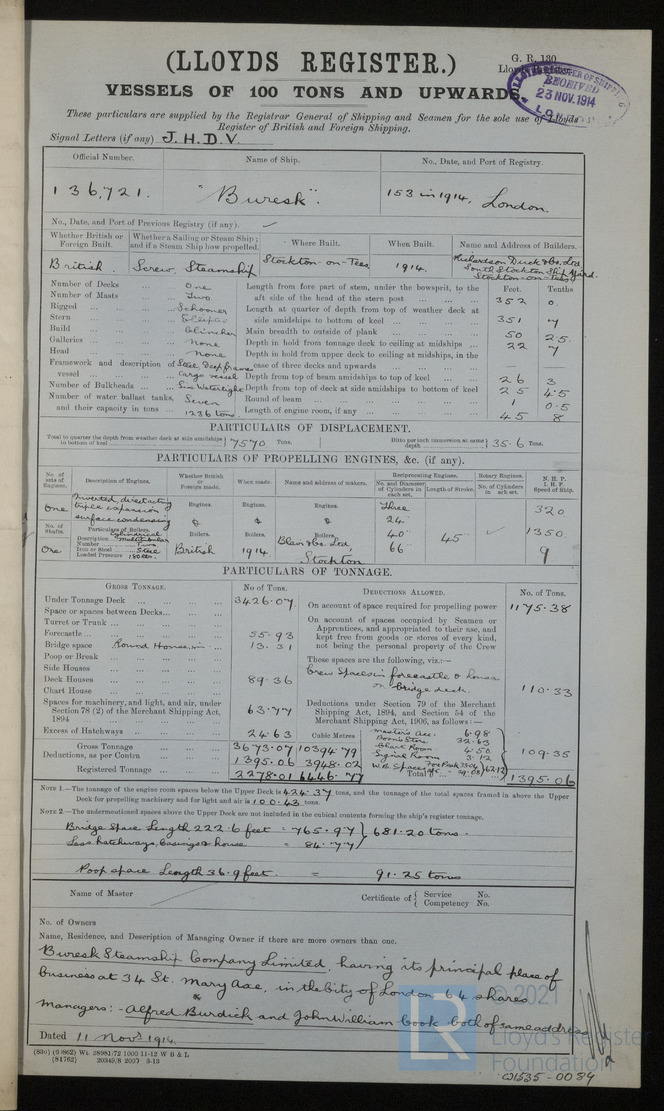 (LLOYDS REGISTER.)
G. R. 130
VESSELS OF 100 TONS AND UPWARDS.
LLOYD'S REGISTER OF SHIPPING
RECEIVED
23 NOV. 1914
These particulars are supplied by the Registrar General of Shipping and Seamen for the sole use of Lloyds
Register of British and Foreign Shipping.
Signal Letters (if any) J. H. D. V.
Official Number. Name of Ship. No., Date, and Port of Registry.
136,721. "Buresk". 153 in 1914, London.
No., Date, and Port of Previous Registry (if any).
Whether British or Foreign Built. Whether a Sailing or Steam Ship; and if a Steam Ship how propelled. Where Built. When Built. Name and Address of Builders.
British. Screw, Steamship Stockton-on-Tees 1914. Richardson Duck & Co. Ltd
South Stockton Ship Yard.
Stockton-on-Tees
Feet. Tenths
Number of Decks One
Number of Masts Two
Rigged Schooner
Stern Elliptic
Build Clincher
Galleries None
Head None
Framework and description of vessel Steel Deep frame Cargo vessel
Number of Bulkheads Six Watertight
Number of water ballast tanks, and their capacity in tons Seven 1236 tons.
Length from fore part of stem, under the bowsprit, to the aft side of the head of the stern post 352 0.
Length at quarter of depth from top of weather deck at side amidships to bottom of keel 351 7
Main breadth to outside of plank 50 25.
Depth in hold from tonnage deck to ceiling at midships 22 7
Depth in hold from upper deck to ceiling at midships, in the case of three decks and upwards —
Depth from top of beam amidships to top of keel 26 3
Depth from top of deck at side amidships to bottom of keel 25 4.5
Round of beam 1 0.5
Length of engine room, if any 45 8
PARTICULARS OF DISPLACEMENT.
Total to quarter the depth from weather deck at side amidships to bottom of keel 7570 Tons. Ditto per inch immersion at same depth 35.6 Tons.
PARTICULARS OF PROPELLING ENGINES, &c. (if any).
No. of sets of Engines. Description of Engines. Whether British or Foreign made. When made. Name and address of makers. Reciprocating Engines. Rotary Engines. N. H. P.
I. H. P.
Speed of Ship.
No. and Diameter of Cylinders in each set. Length of Stroke. No. of Cylinders in each set.
One Inverted, direct acting triple expansion surface condensing Engines. Engines. Engines. Three 24. 40 66 45 320
No. of Shafts. Particulars of Boilers. Boilers. Boilers. Boilers. 1350
One Description Cylindrical multitubular
Number Two
Iron or Steel Steel
Loaded Pressure 180 lbs.
British 1914 Blair & Co. Ltd Stockton 9
PARTICULARS OF TONNAGE.
GROSS TONNAGE. No of Tons.
Under Tonnage Deck 3426.07.
Space or spaces between Decks
Turret or Trunk
Forecastle 55.93
Bridge space Round House in 13.31
Poop or Break
Side Houses
Deck Houses 89.36
Chart House
Spaces for machinery, and light, and air, under Section 78 (2) of the Merchant Shipping Act, 1894 63.77
Excess of Hatchways 24.63 Cubic Metres
Gross Tonnage 3673.07 10394.79
Deductions, as per Contra 1395.06 3948.02
Registered Tonnage 2278.01 6446.77
DEDUCTIONS ALLOWED. No. of Tons.
On account of space required for propelling power 1175.38
On account of spaces occupied by Seamen or Apprentices, and appropriated to their use, and kept free from goods or stores of every kind, not being the personal property of the Crew
These spaces are the following, viz.:—
Crew Spaces in forecastle & house on bridge deck. 110.33
Deductions under Section 79 of the Merchant Shipping Act, 1894, and Section 54 of the Merchant Shipping Act, 1906, as follows:—
Master's acc. 6.98
Boson's Store 32.63
Chart Room 4.50
Signal Room 3.12
W.B. Spaces 62.12
109.35
Total 1395.06
NOTE 1.—The tonnage of the engine room spaces below the Upper Deck is 424.37 tons, and the tonnage of the total spaces framed in above the Upper
Deck for propelling machinery and for light and air is 100.43 tons.
NOTE 2.—The undermentioned spaces above the Upper Deck are not included in the cubical contents forming the ship's register tonnage.
Bridge Space Length 222.6 feet = 765.97 } 681.20 tons.
Less hatchways, Casings & house = 84.77
Poop space Length 36.9 feet. = 91.25 tons
Name of Master Certificate of { Service No.
Competency No.
No. of Owners
Name, Residence, and Description of Managing Owner if there are more owners than one.
Buresk Steamship Company Limited, having its principal place of
business at 34 St. Mary Axe, in the City of London 64 shares
Managers:- Alfred Burdick and John William Cook both of same address
Dated 11 Novr 1914.
(81762) 20349/8 2007 3-13
© 2021
LR
Lloyd's Register
Foundation
W1535-0084